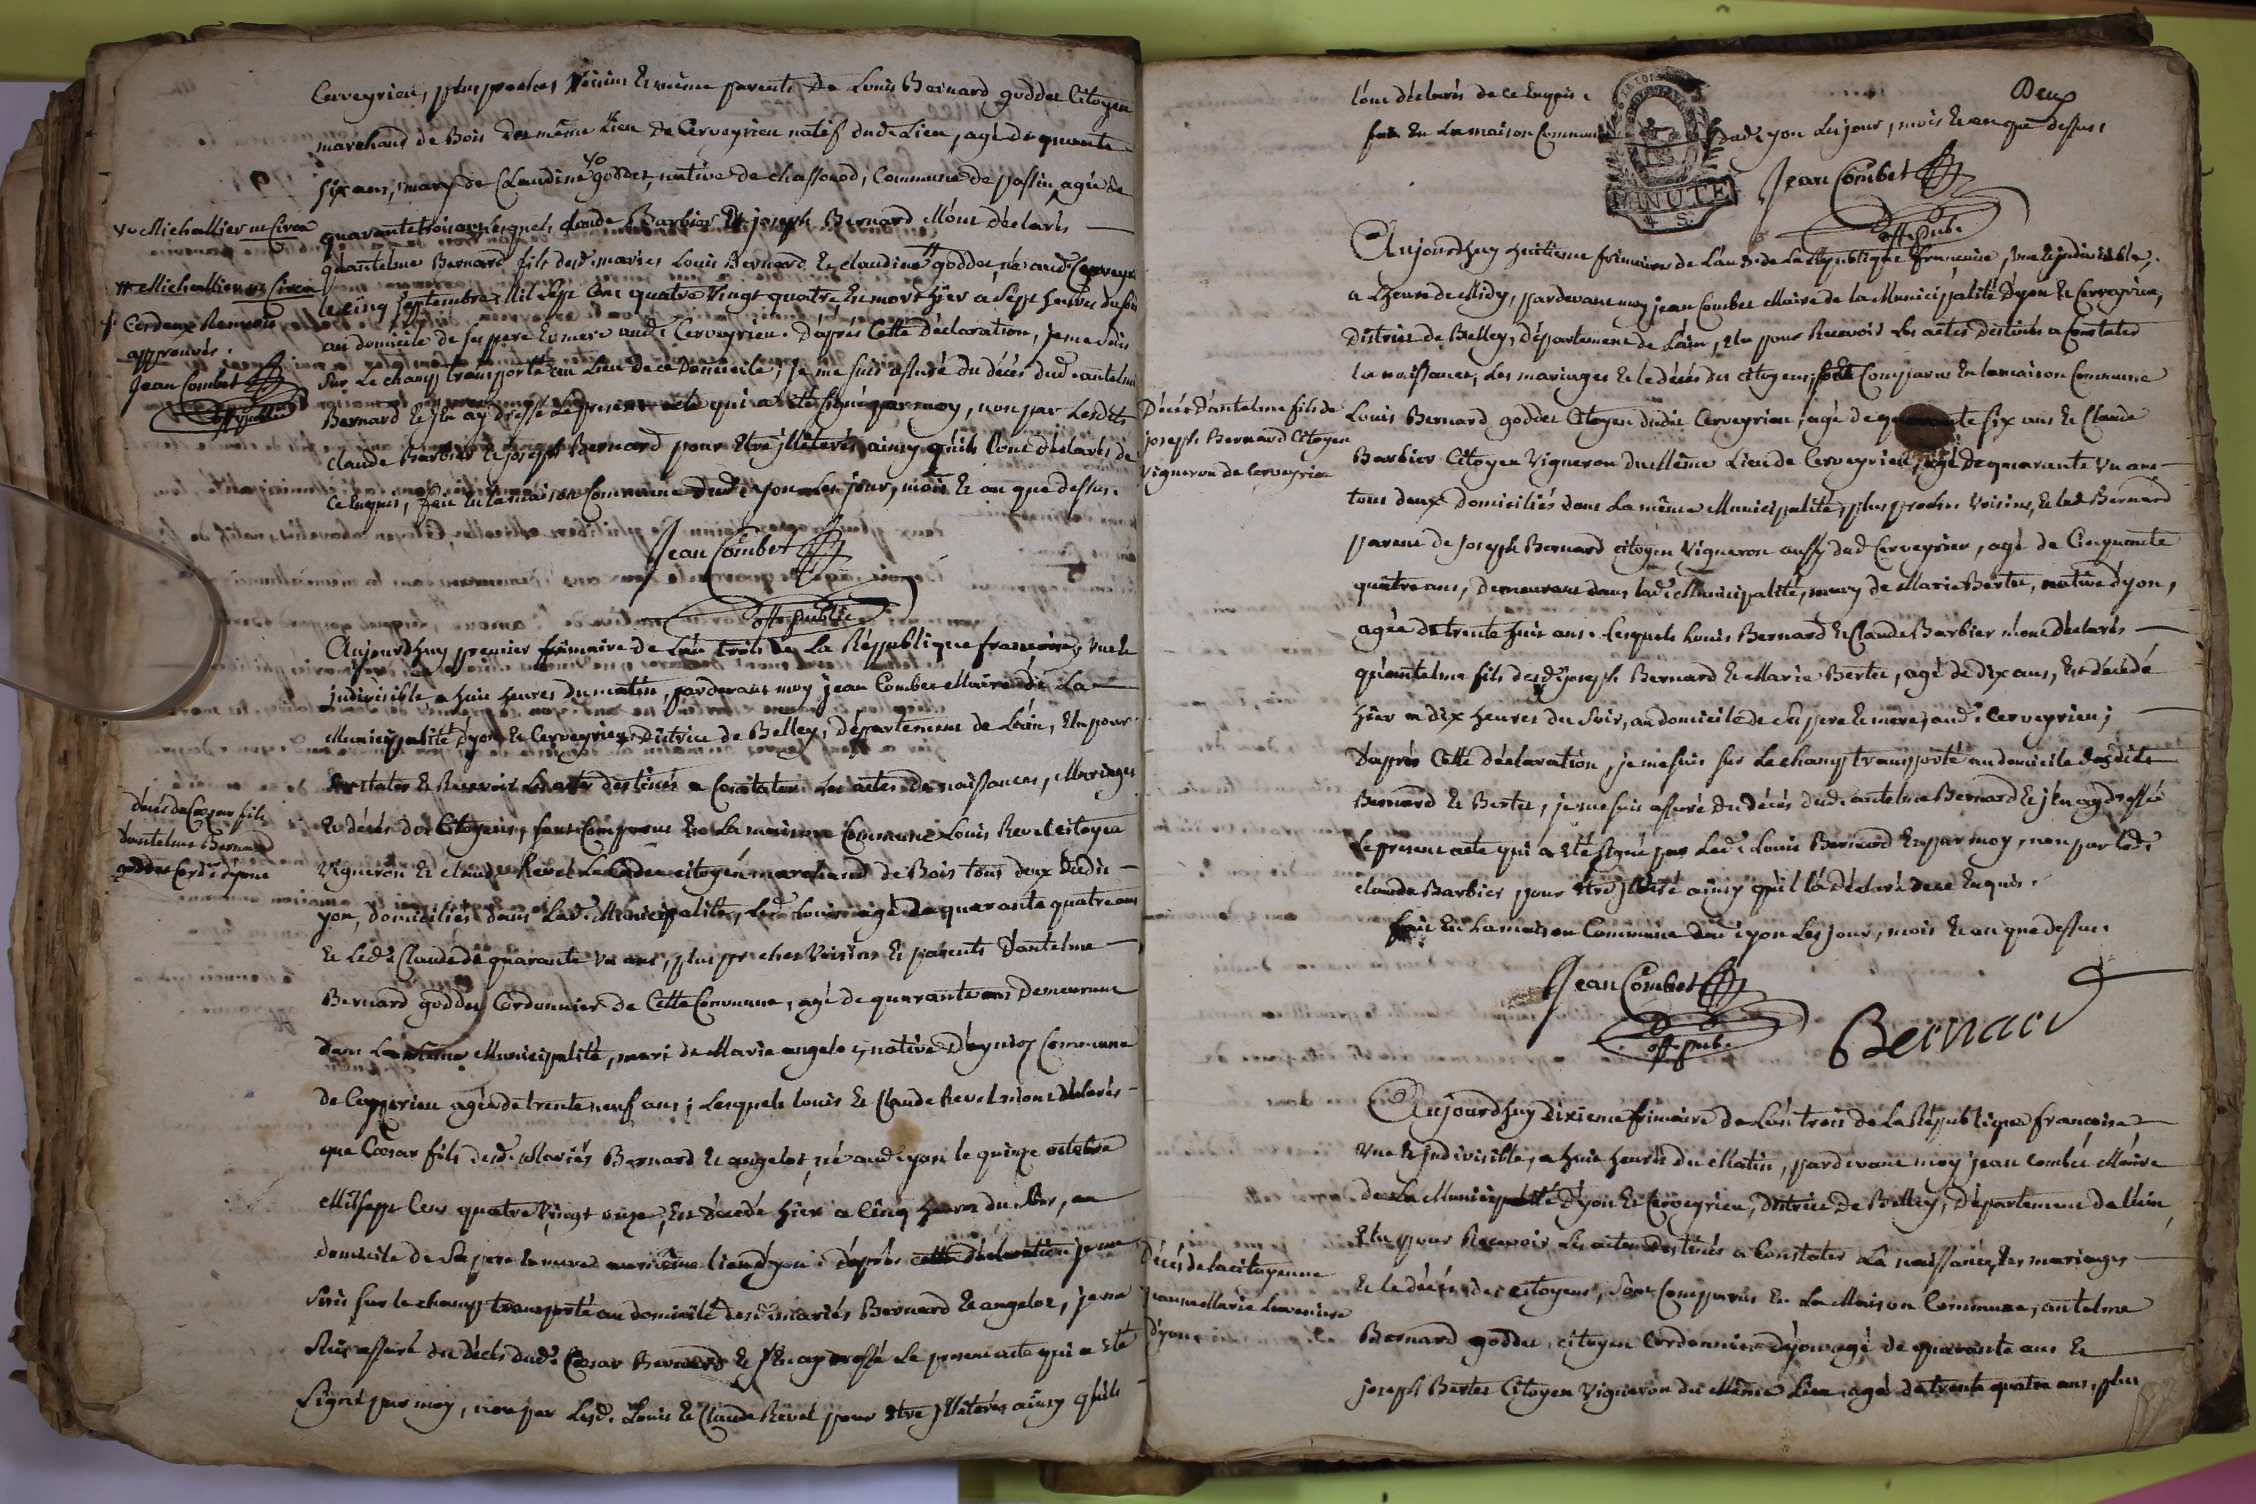 Cerveyrieu, plus proches Voisins et même parents De Louis Bernard goddet Citoyen
marchand de Bois du même Lieu de Cerveyrieu natif dud. Lieu, agé de quarente
six ans, mary de Claudine goddet, native de chassonod, Commune de passin, agée de
quarante trois ans lesquels claude Barbier Et joseph Bernard M'ont déclarés
qu'antelme Bernard fils desd. mariés Louis Bernard et claudine goddet né aud. Cerveyrieu
le cinq septembre Mil Sept Cent quatre Vingt quatre Est mort hier a Sept heures du soir
au domicile de ses pere Et mere aud. Cerveyrieu. D'après Cette Déclaration, je me suis
Sur Le champ transporté au Lieu de ce Domicile, je me suis assuré du décès dud. antelme
Bernard et j'En ay dressé Le present acte qui a été signé par moy, non par Lesdits
claude Barbier et joseph Bernard pour être jlliterés ainsy qu'ils l'ont déclarés de
ce Enquis, fait En la maison Commune Dud. yon Les jour, mois Et an que dessus.
Vo Michallier
Michallier
Ces deux Renvois
approuvés
Jean Combet
off. public
Jean Combet
off. public
Aujourd'huy premier frimaire de L'an trois de La République françoise, une et
jndivisible, a huit heures du matin, pardevant moy jean Combet Maire de La
Municipalité d'yon et Cerveyrieu District de Belley, département de L'ain, Elu pour
Constater et Recevoir Les actes destinés a Constater Les actes de naissances, Mariages
Et décès des Citoyens, sont Comparus En La maison Commune Louis Revel citoyen
Vigneron Et claude Revel Le Cadet citoyen marchand de Bois tous deux dudit
yon, domiciliés dans Lad. Municipalité, Led. Louis agé de quarante quatre ans
Et Led. Claude de quarante Un ans, plus proches Voisins Et parents D'antelme
Bernard goddet Cordonnier de Cette Commune, agé de quarante ans Demeurant
dans La même Municipalité, mari de Marie angelot, native D'eyndoz Commune
de Ceyzerieu agée de trente neuf ans; Lesquels louis Et Claude Revel m'ont déclarés
que Cæsar fils desd. Mariés Bernard Et angelot, né aud. yon le quinze octobre
Mil sept Cent quatre Vingt onze, Est décédé hier a cinq heures du soir, au
domicile de Ses pere Et mere au même lieu d'yon; d'après cette déclaration je me
Suis sur le champ transporté au domicile desd. mariés Bernard Et angelot, je me
Suis assuré du décès dud. Cæsar Bernard Et j'En ay dressé Le present acte qui a été
Signé par moy, non par Lesd. Louis Et Claude Revel pour être jlliterés ainsy qu'ils
décès de Cæsar fils
d'antelme Bernard
goddet Cord. d'yon
Deux
l'ont déclarés de ce Enquis.
fait En La maison Commune dud. yon Les jour, mois Et an que dessus.
MINUTE
4 S.
Jean Combet
off. pub.
Aujourd'huy huitieme frimaire de L'an 3 de La République françoise, Une Et jndivisible,
a L'heure de Midy, pardevant moy jean Combet Maire de la Municipalité D'yon Et Cerveyrieu,
District de Belley, département de L'ain, Elu pour Recevoir Les actes destinés a Constater
la naissance, Les mariages Et le décès des citoyens, sont Comparus En la maison Commune
Louis Bernard goddet Citoyen dudit Cerveyrieu, agé de quarante six ans Et Claude
Barbier Citoyen Vigneron du Même Lieu de Cerveyrieu, agé de quarante Un ans
tous deux domiciliés dans La même Municipalité, plus proches Voisins, Et led. Bernard
parent de joseph Bernard citoyen Vigneron aussy dud. Cerveyrieu, agé de Cinquante
quatre ans, Demeurant dans lad. Municipalité, mary de Marie Bertet, native d'yon,
agée de trente huit ans. Lesquels Louis Bernard Et Claude Barbier m'ont déclarés
qu'antelme fils desd. joseph Bernard Et Marie Bertet, agé de dix ans, Est décédé
hier a dix heures du Soir, au domicile de ses pere Et mere, aud. Cerveyrieu;
D'après Cette déclaration, je me suis sur Le champ transporté au domicile desdits
Bernard Et Bertet, je me suis assuré du décès dud. antelme Bernard Et j'En ay dressé
Le present acte qui a été signé par Led. Louis Bernard Et par moy, non par led.
claude Barbier pour être jlliteré ainsy qu'il l'a déclaré de ce Enquis.
fait En La maison Commune dud. yon Les jour, mois Et an que dessus.
Décès d'antelme fils de
joseph Bernard Citoyen
Vigneron de Cerveyrieu
Jean Combet
off. pub.
Bernard
Aujourd'huy dixieme frimaire de L'an trois de La République françoise
Une Et Jndivisible, a huit heures du Matin, pardevant moy jean Combet Maire
de La Municipalité D'yon Et Cerveyrieu, District De Belley, Département de l'Ain,
Elu pour Recevoir Les actes destinés a Constater La naissance, Les mariages
Et le décès des citoyens, sont Comparus En La Maison Commune, antelme
Bernard goddet citoyen Cordonnier d'yon agé de quarante ans Et
joseph Bertet Citoyen Vigneron du Même Lieu, agé de trente quatre ans, plus
Décès de la citoyenne
jeanne Marie
d'yon